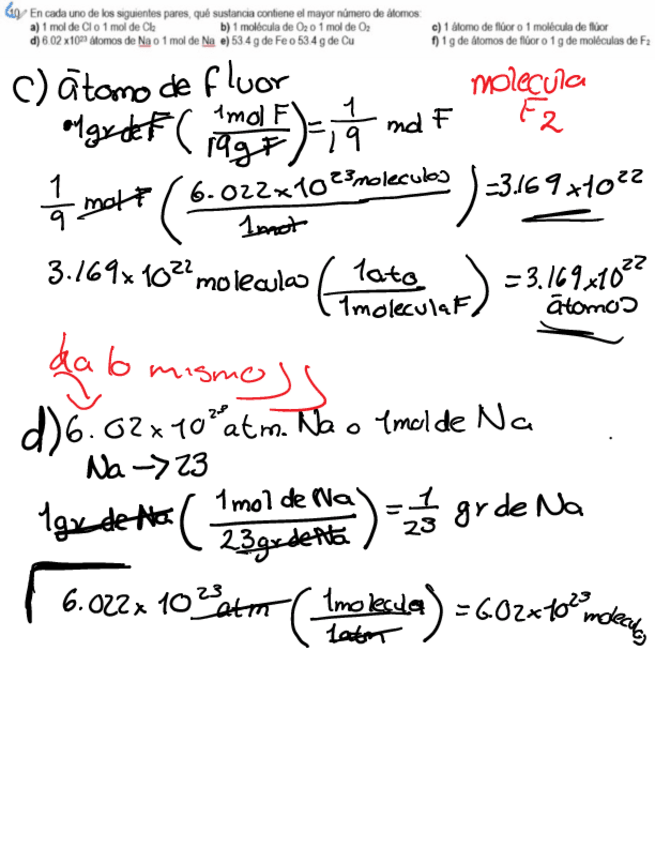 10/ En cada uno de los siguientes pares, qué sustancia contiene el mayor número de átomos:
a) 1 mol de Cl o 1 mol de Cl₂ b) 1 molécula de O₂ o 1 mol de O₂ c) 1 átomo de flúor o 1 molécula de flúor
d) 6.02 x10²³ átomos de Na o 1 mol de Na e) 53.4 g de Fe o 53.4 g de Cu f) 1 g de átomos de flúor o 1 g de moléculas de F₂
c) átomo de fluor molecula F2
1gr de F (1mol F / 19g F) = 1/19 mol F
1/9 mol F (6.022x10²³ moleculas / 1mol) = 3.169x10²²
3.169x10²² moleculas (1ato / 1molecula F) = 3.169x10²² átomos
da lo mismo
d) 6.02x10²³ atm. Na o 1mol de Na
Na → 23
1gr de Na (1mol de Na / 23gr de Na) = 1/23 gr de Na
6.022x10²³ atm (1molecula / 1atm) = 6.02x10²³ molecula